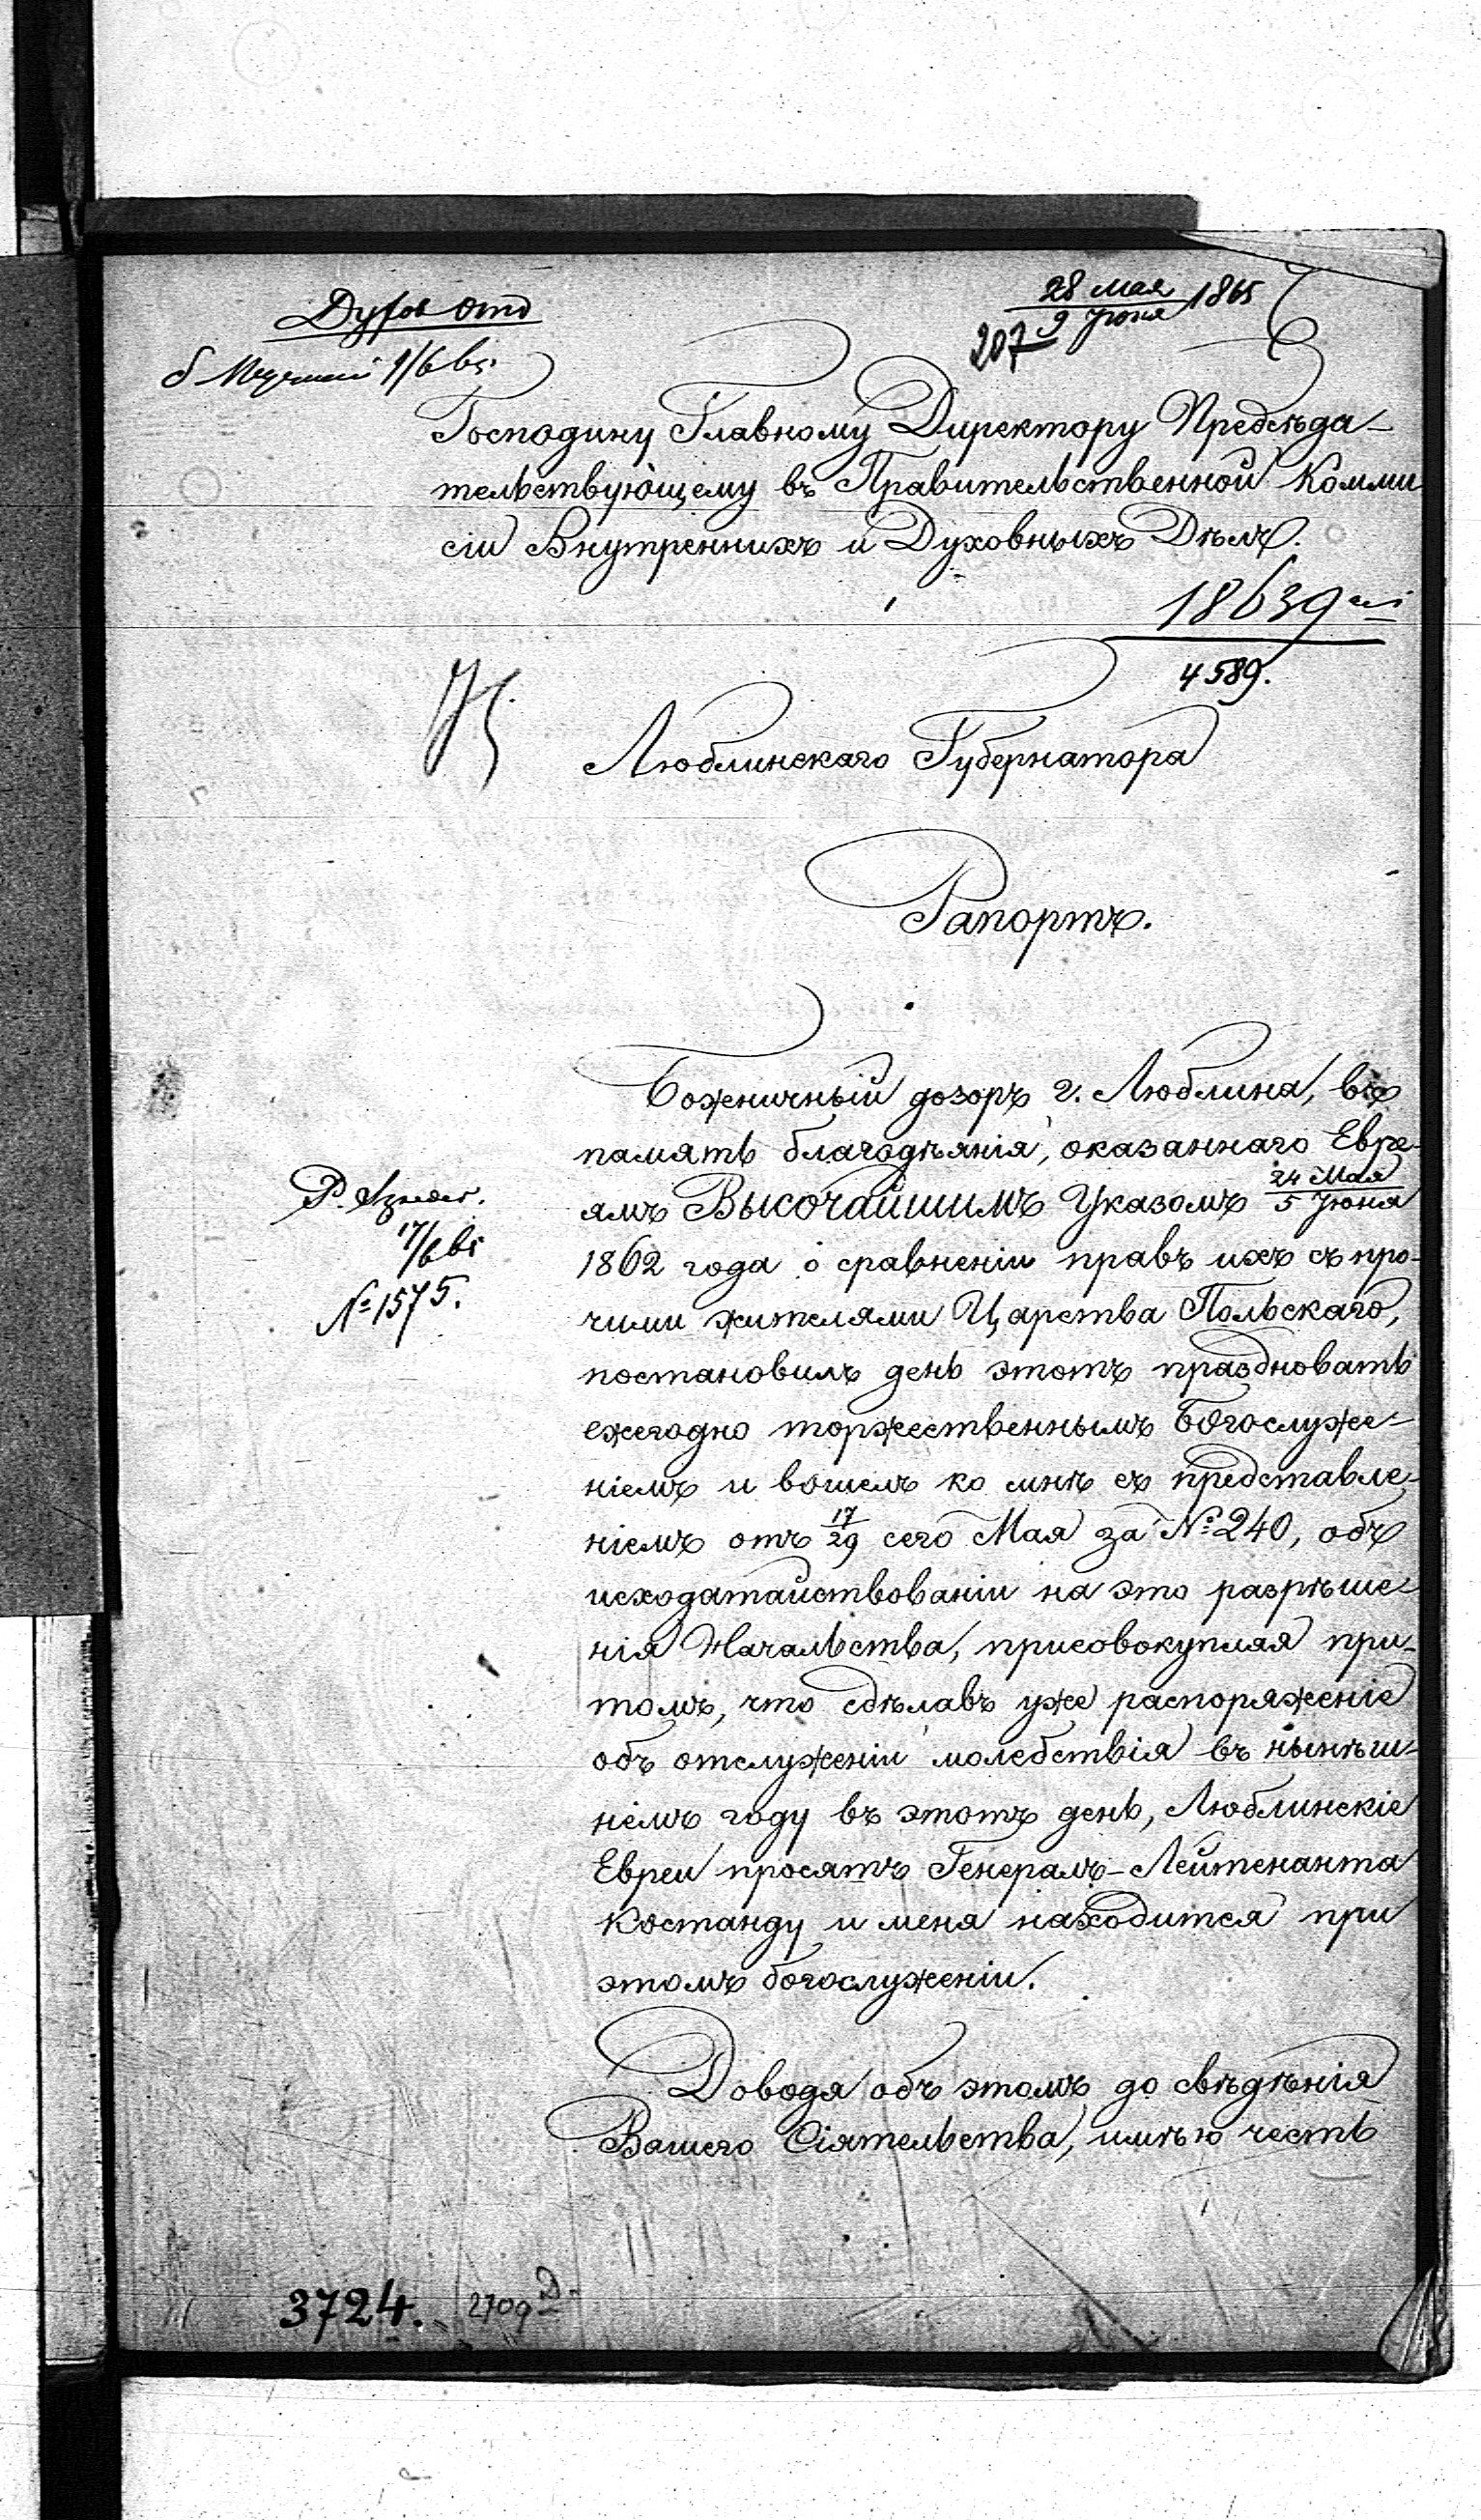 28 Мая 1865
9 Іюня
207
Духов Отд
9/6 65
Господину Главному Директору Предсѣда-
тельствующему въ Правительственной Комми
сіи Внутреннихъ и Духовныхъ Дѣлъ.
18639
4589.
Люблинскаго Губернатора
Рапортъ.
Боженичный дозоръ г. Люблина, въ
память благодѣянія, оказаннаго Евре-
ямъ Высочайшимъ Указомъ 24 Мая/5 Іюня
1862 года о сравненіи правъ ихъ съ про-
чими жителями Царства Польскаго,
постановилъ день этотъ праздновать
ежегодно торжественнымъ Богослуже-
ніемъ и вошелъ ко мнѣ съ представле-
ніемъ отъ 17/29 сего Мая за №240, объ
исходатайствованіи на это разрѣше-
нія Начальства, присовокупляя при-
томъ, что сдѣлавъ уже распоряженіе
объ отслуженіи молебствія въ нынѣш-
немъ году въ этотъ день, Люблинскіе
Евреи просятъ Генералъ-Лейтенанта
Костанду и меня находится при
этомъ богослуженіи.
Доводя объ этомъ до свѣдѣнія
Вашего Сіятельства, имѣю честь
17/6 65
№1575.
3724.
2709